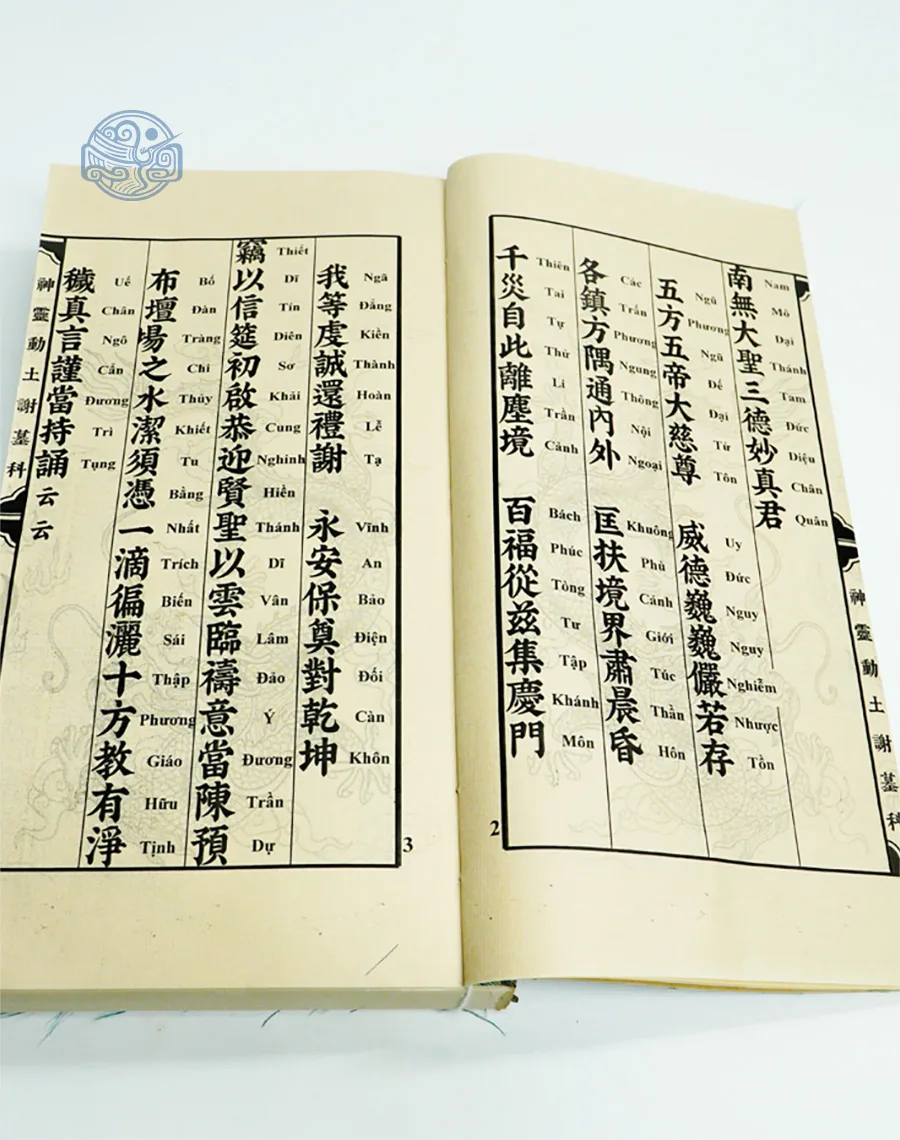 神靈動土謝墓科
南無大聖三德妙真君
Nam Mô Đại Thánh Tam Đức Diệu Chân Quân
五方五帝大慈尊 威德巍巍儼若存
Ngũ Phương Ngũ Đế Đại Từ Tôn Uy Đức Nguy Nguy Nghiễm Nhược Tồn
各鎮方隅通內外 匡扶境界肅晨昏
Các Trấn Phương Ngung Thông Nội Ngoại Khuông Phù Cảnh Giới Túc Thần Hôn
千災自此離塵境 百福從茲集慶門
Thiên Tai Tự Thử Li Trần Cảnh Bách Phúc Tòng Tư Tập Khánh Môn
2
我等虔誠還禮謝 永安保奠對乾坤
Ngã Đẳng Kiền Thành Hoàn Lễ Tạ Vĩnh An Bảo Điện Đối Càn Khôn
竊以信筵初啟恭迎賢聖以雲臨禱意當陳預
Thiết Dĩ Tín Diên Sơ Khải Cung Nghinh Hiền Thánh Dĩ Vân Lâm Đảo Ý Đương Trần Dự
布壇場之水潔須憑一滴徧灑十方教有淨
Bố Đàn Tràng Chi Thủy Khiết Tu Bằng Nhất Trích Biến Sái Thập Phương Giáo Hữu Tịnh
穢真言謹當持誦云云
Uế Chân Ngô Cẩn Đương Trì Tụng
神靈動土謝墓科
3